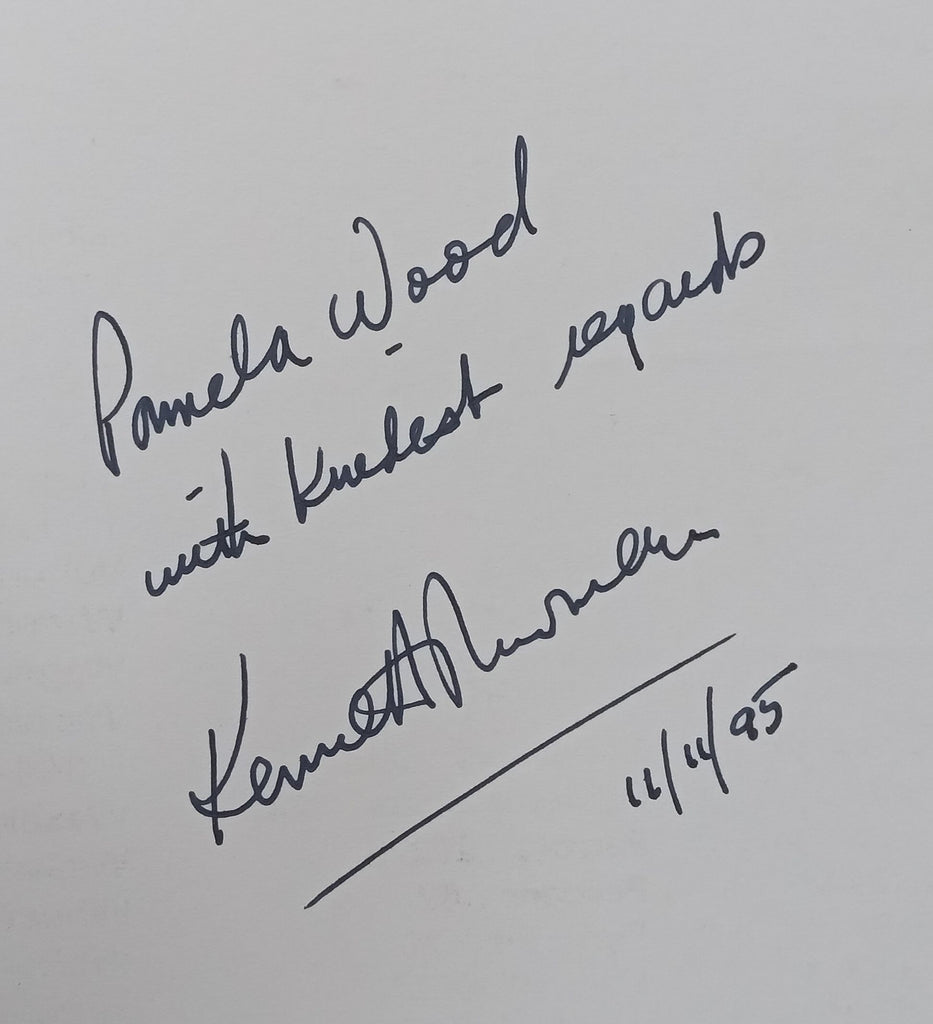 Pamela Wood
with kindest regards
Kenneth Newman
11/11/95